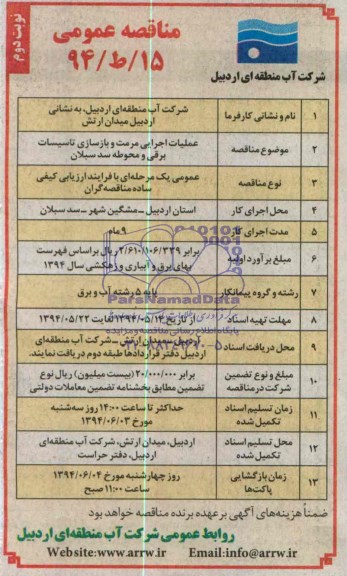 نوبت دوم
مناقصه عمومی
۹۴/ط/۱۵
شرکت آب منطقه‌ای اردبیل
۱ نام و نشانی کارفرما شرکت آب منطقه‌ای اردبیل، به نشانی
اردبیل میدان ارتش
۲ موضوع مناقصه عملیات اجرایی مرمت و بازسازی تاسیسات
برقی و محوطه سد سبلان
۳ نوع مناقصه عمومی یک مرحله‌ای با فرایند ارزیابی کیفی
ساده مناقصه‌گران
۴ محل اجرای کار استان اردبیل ـ مشگین شهر ـ سد سبلان
۵ مدت اجرای کار ۹ ماه
۶ مبلغ برآورد اولیه برابر ۲/۶۱۰/۱۰۶/۳۳۹ ریال براساس فهرست
بهای برق و آبیاری و زهکشی سال ۱۳۹۴
۷ رشته و گروه پیمانکار پایه ۵ رشته آب و برق
ParsNamadData
۸ مهلت تهیه اسناد از تاریخ ۱۳۹۴/۰۵/۱۴ لغایت ۱۳۹۴/۰۵/۲۲
پایگاه اطلاع رسانی مناقصه و مزایده
۹ محل دریافت اسناد اردبیل میدان ارتش ـ شرکت آب منطقه‌ای
اردبیل دفتر قراردادها طبقه دوم دریافت نمایند.
۱۰ مبلغ و نوع تضمین برابر ۲۰/۰۰۰/۰۰۰ (بیست میلیون) ریال نوع
شرکت در مناقصه تضمین مطابق بخشنامه تضمین معاملات دولتی
۱۱ زمان تسلیم اسناد حداکثر تا ساعت ۱۴:۰۰ روز سه‌شنبه
تکمیل شده مورخ ۱۳۹۴/۰۶/۰۳
۱۲ محل تسلیم اسناد اردبیل، میدان ارتش، شرکت آب منطقه‌ای
تکمیل شده اردبیل، دفتر حراست
۱۳ زمان بازگشایی روز چهارشنبه مورخ ۱۳۹۴/۰۶/۰۴
پاکت‌ها ساعت ۱۱:۰۰ صبح
ضمناً هزینه‌های آگهی بر عهده برنده مناقصه خواهد بود
روابط عمومی شرکت آب منطقه‌ای اردبیل
Website:www.arrw.ir Email:info@arrw.ir